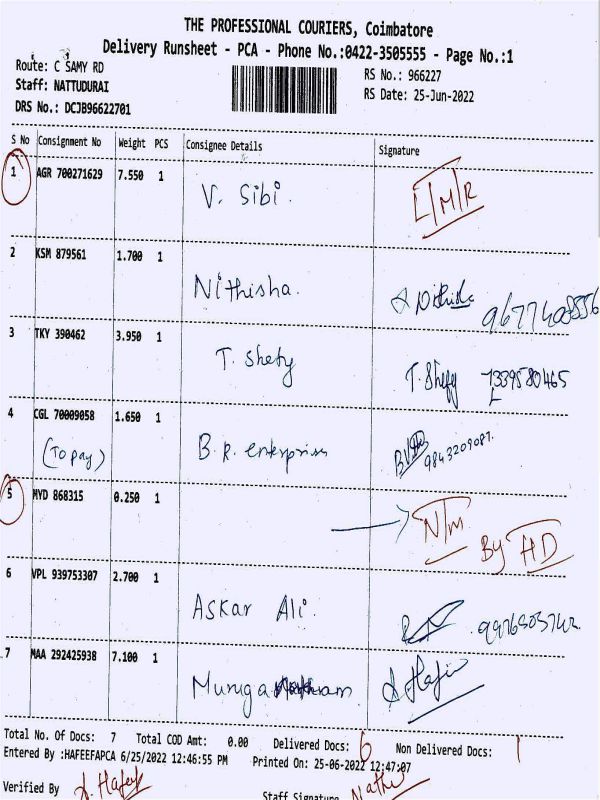 THE PROFESSIONAL COURIERS, Coimbatore
Delivery Runsheet - PCA - Phone No.:0422-3505555 - Page No.:1
Route: C SAMY RD
RS No.: 966227
Staff: NATTUDURAI
RS Date: 25-Jun-2022
DRS No.: DCJB96622701
S No Consignment No Weight PCS Consignee Details Signature
1 AGR 700271629 7.550 1 V. Sibi L/M/R
2 KSM 879561 1.700 1 Nithisha.
3 TKY 390462 3.950 1 T. Shefy T. Shefy 7339580465
4 CGL 70009058 1.650 1 B.R. enterprises 9843209087.
(To pay)
5 MYD 868315 0.250 1 N/M By HD
6 VPL 939753307 2.700 1 Askar Ali.
7 MAA 292425938 7.100 1
Total No. Of Docs: 7 Total COD Amt: 0.00 Delivered Docs: 6 Non Delivered Docs: 1
Entered By :HAFEEFAPCA 6/25/2022 12:46:55 PM Printed On: 25-06-2022 12:47:07
Verified By Staff Signature